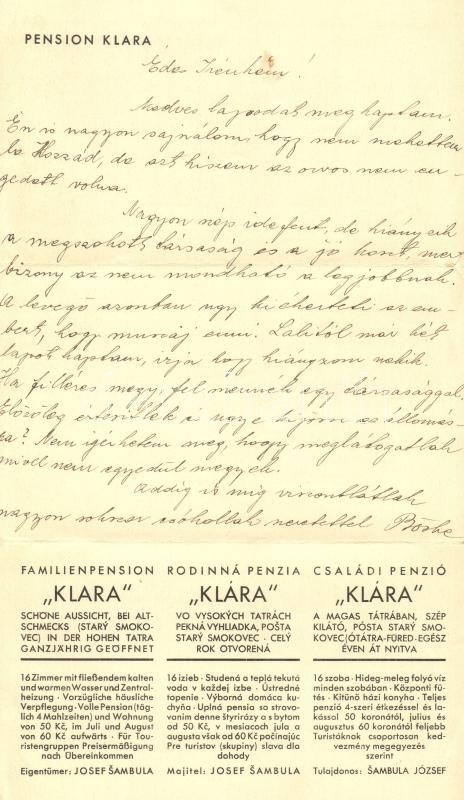 PENSION KLARA
Édes Irénkém!
Kedves lapodat megkaptam.
Én is nagyon sajnálom, hogy nem mehettem
be Hozzád, de azt hiszem az orvos nem en-
gedett volna.
Nagyon szép idefent, de hiányzik
a megszokott társaság és a jó koszt, mert
bizony az nem mondható a legjobbnak.
A levegő azonban ugy kiéhezteti az em-
bert, hogy muszáj enni. Lalitól már két
lapot kaptam, irja hogy hiányzom nekik.
Ha filléres megy fel mennék egy társasággal.
értesitlek s ugye kijön az állomás-
ra? Nem igérhetem meg, hogy meglátogatlak
mivel nem egyedül megyek.
Addig is mig viszontlátlak
nagyon sokszor csókollak szeretettel Böske
FAMILIENPENSION
„KLARA“
SCHÖNE AUSSICHT, BEI ALT-
SCHMECKS (STARÝ SMOKO-
VEC) IN DER HOHEN TATRA
GANZJÄHRIG GEÖFFNET
16 Zimmer mit fließendem kalten
und warmen Wasser und Zentral-
heizung · Vorzügliche häusliche
Verpflegung · Volle Pension (täg-
lich 4 Mahlzeiten) und Wohnung
von 50 Kč, im Juli und August
von 60 Kč aufwärts · Für Tou-
ristengruppen Preisermäßigung
nach Übereinkommen
Eigentümer: JOSEF ŠAMBULA
RODINNÁ PENZIA
„KLÁRA“
VO VYSOKÝCH TATRÁCH
PEKNÁ VYHLIADKA, POŠTA
STARÝ SMOKOVEC · CELÝ
ROK OTVORENÁ
16 izieb · Studená a teplá tekutá
voda v každej izbe · Ústredné
topenie · Výborná domáca ku-
chyňa · Uplná pensia so stravo-
vaním denne štyrirázy a s bytom
od 50 Kč, v mesiacoch jula a
augusta však od 60 Kč počínajúc
Pre turistov (skupiny) slava dľa
dohody
Majiteľ: JOSEF ŠAMBULA
CSALÁDI PENZIÓ
„KLÁRA“
A MAGAS TÁTRÁBAN, SZÉP
KILÁTÓ, PÓSTA STARÝ SMO-
KOVEC (ÓTÁTRA-FÜRED · EGÉSZ
ÉVEN ÁT NYITVA
16 szoba · Hideg-meleg folyó víz
minden szobában · Központi fű-
tés · Kitűnő házi konyha · Teljes
penzió 4-szeri étkezéssel és la-
kással 50 koronától, július és
augusztus 60 koronától feljebb
Turistáknak csoportosan ked-
vezmény megegyezés
szerint
Tulajdonos: ŠAMBULA JÓZSEF